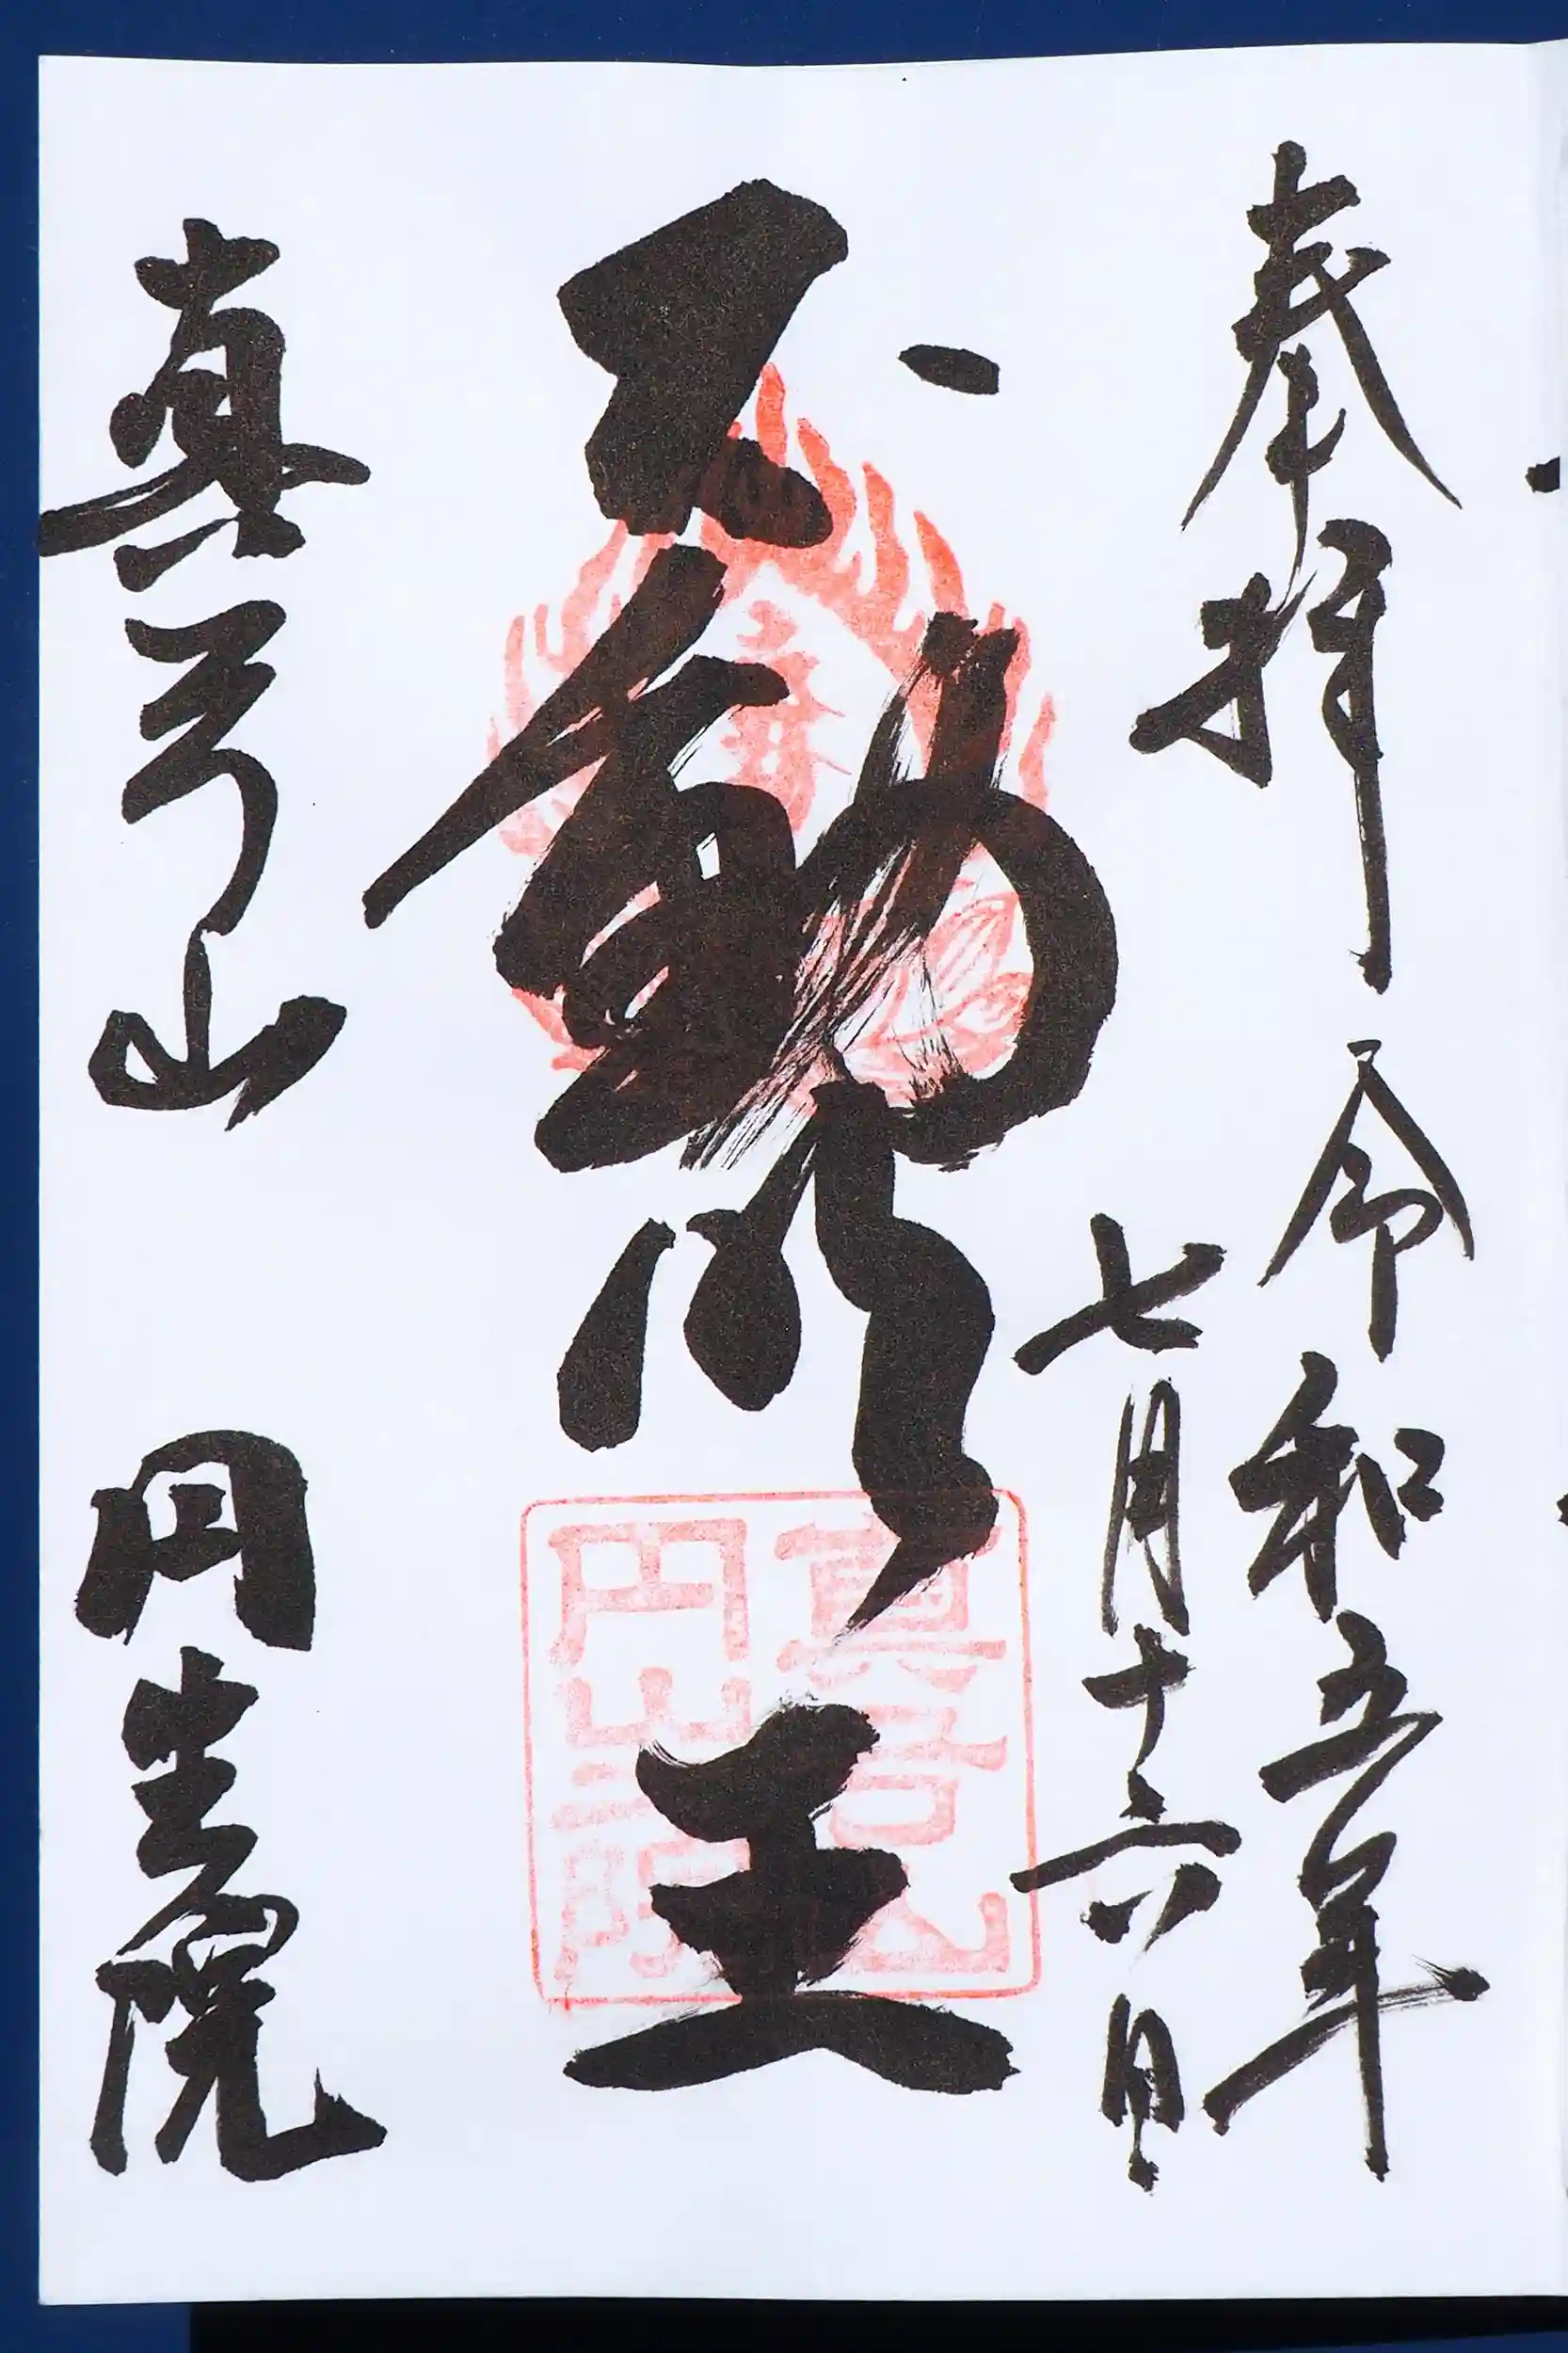 奉拝
令和五年
七月十六日
不動明王
真弓山
円生院
真弓山
円生院